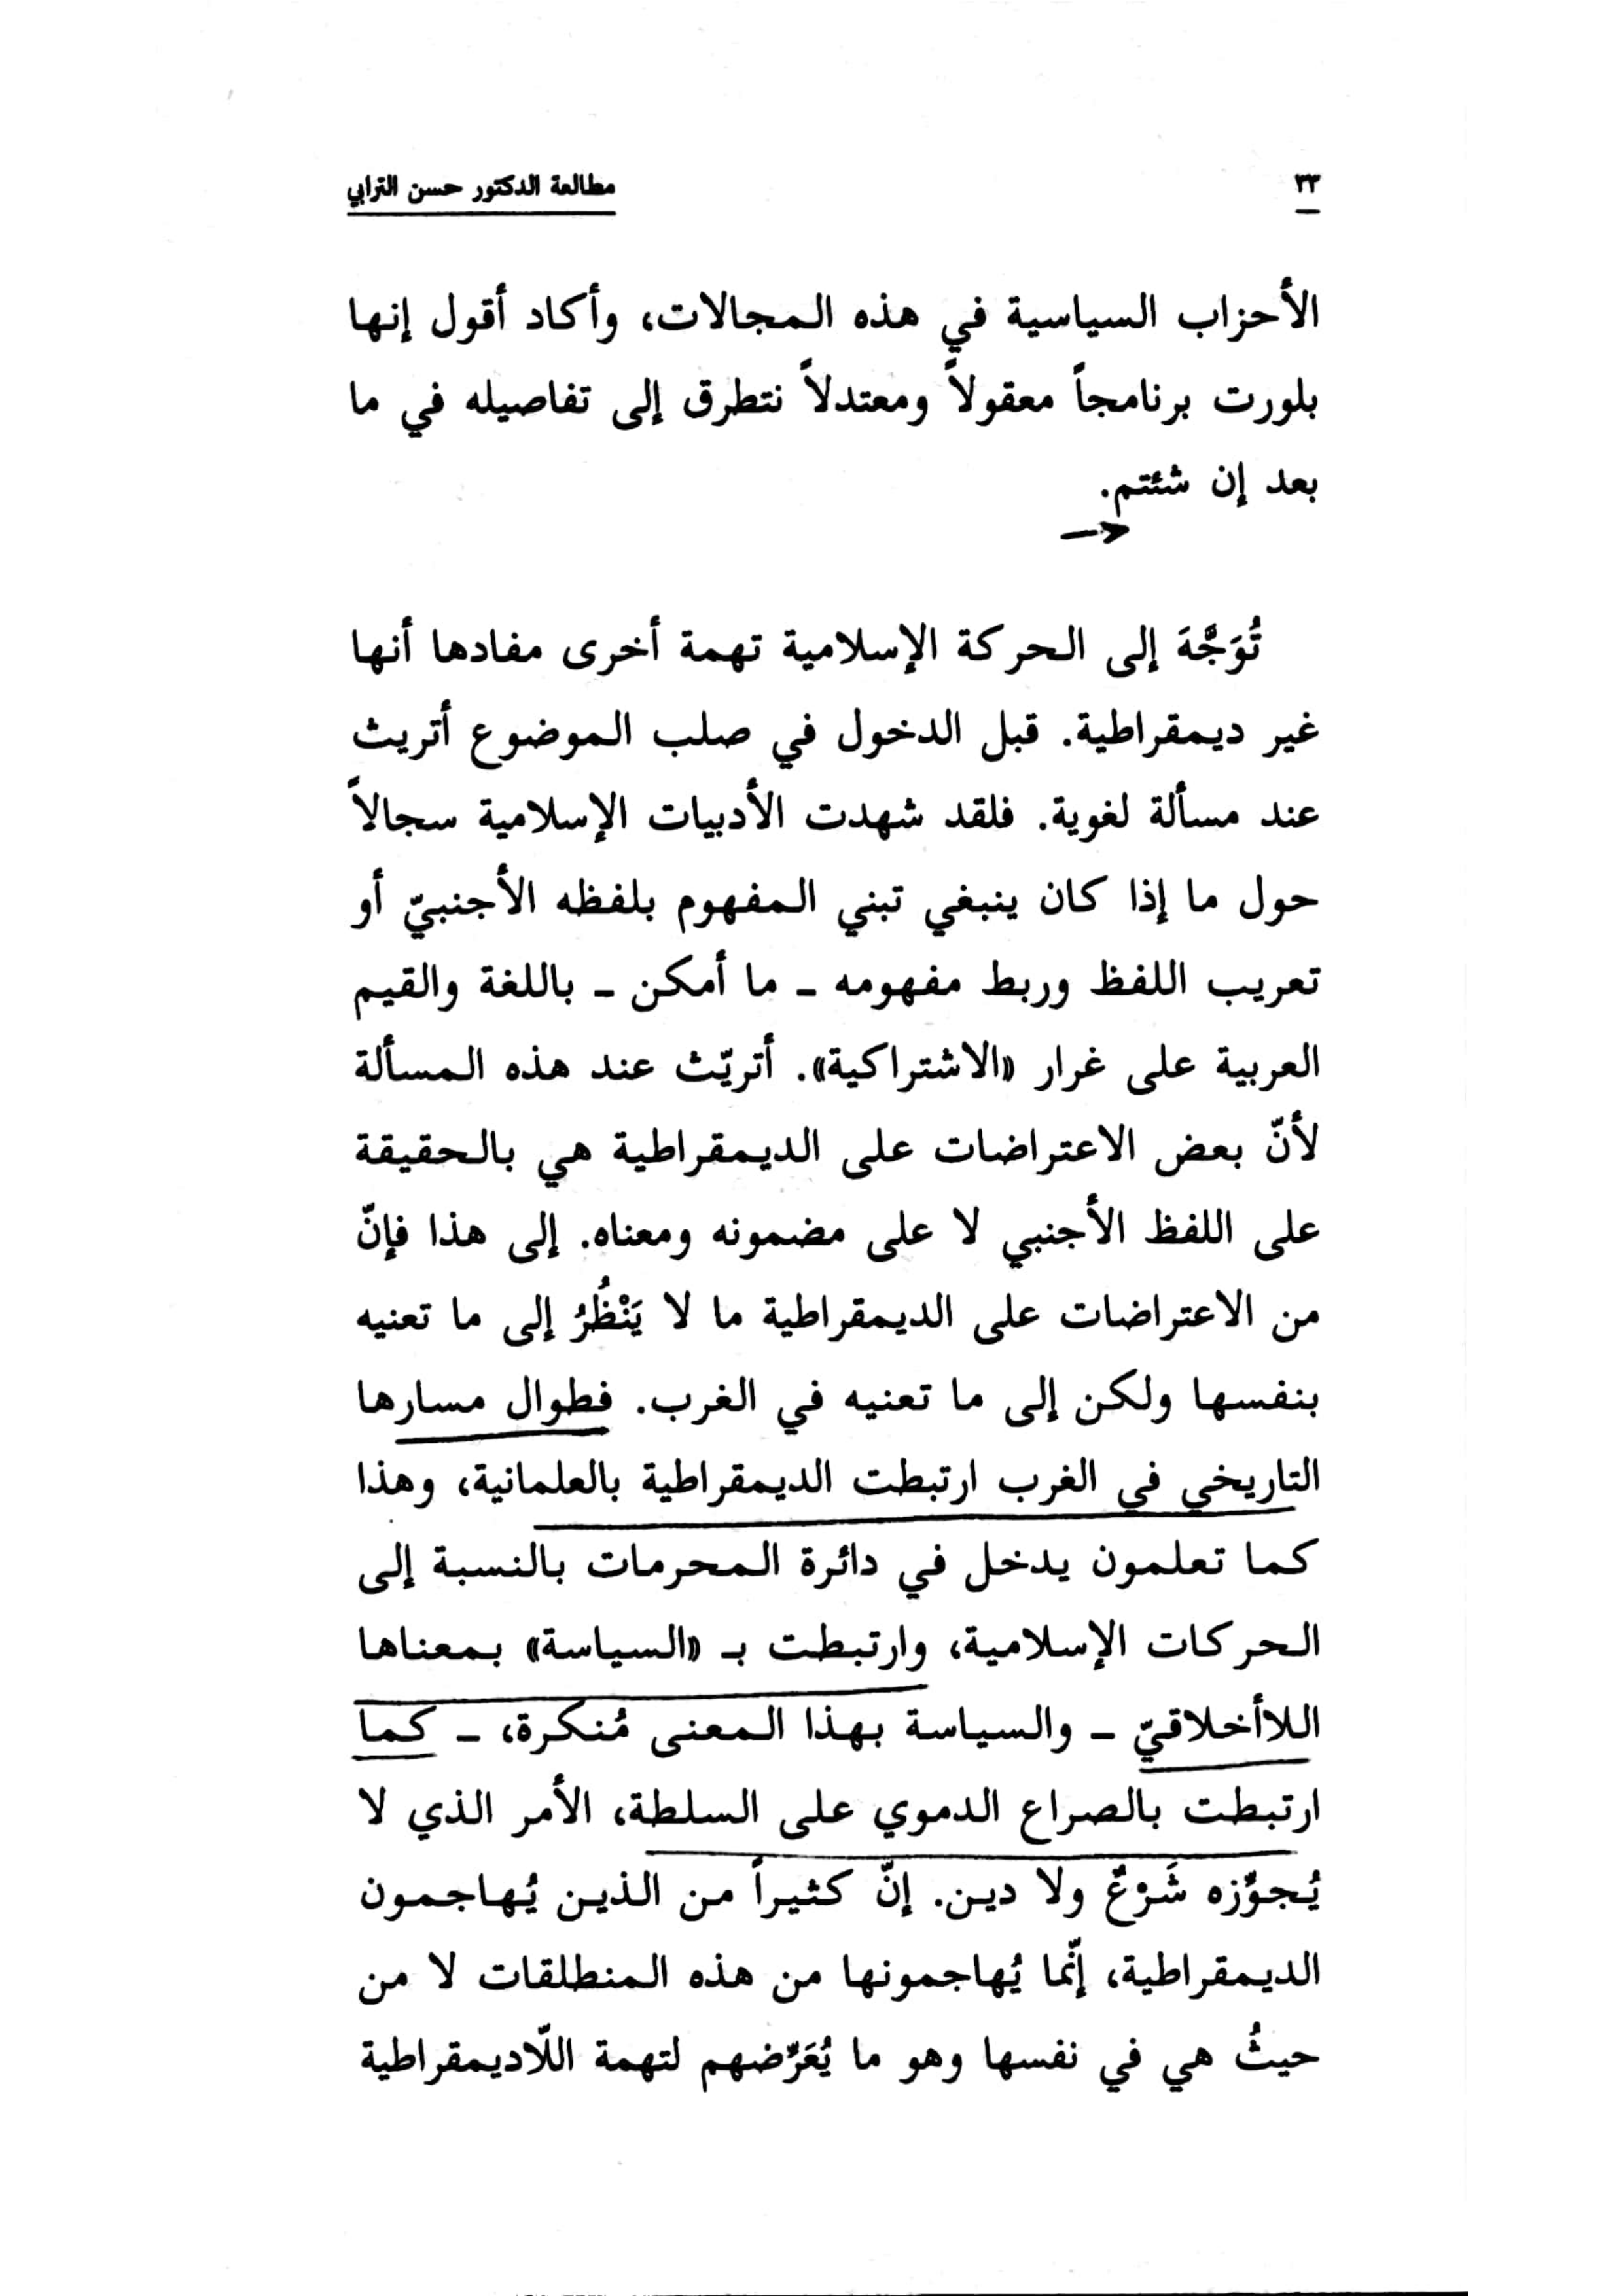 ٣٣
مطالعة الدكتور حسن الترابي
الأحزاب السياسية في هذه المجالات، وأكاد أقول إنها
بلورت برنامجاً معقولاً ومعتدلاً نتطرق إلى تفاصيله في ما
بعد إن شئتم.
تُوَجَّهَ إلى الحركة الإسلامية تهمة أخرى مفادها أنها
غير ديمقراطية. قبل الدخول في صلب الموضوع أتريث
عند مسألة لغوية. فلقد شهدت الأدبيات الإسلامية سجالاً
حول ما إذا كان ينبغي تبني المفهوم بلفظه الأجنبيّ أو
تعريب اللفظ وربط مفهومه - ما أمكن - باللغة والقيم
العربية على غرار «الاشتراكية». أتريّث عند هذه المسألة
لأنّ بعض الاعتراضات على الديمقراطية هي بالحقيقة
على اللفظ الأجنبي لا على مضمونه ومعناه. إلى هذا فإنّ
من الاعتراضات على الديمقراطية ما لا يَنْظُرُ إلى ما تعنيه
بنفسها ولكن إلى ما تعنيه في الغرب. فطوال مسارها
التاريخي في الغرب ارتبطت الديمقراطية بالعلمانية، وهذا
كما تعلمون يدخل في دائرة المحرمات بالنسبة إلى
الحركات الإسلامية، وارتبطت بـ «السياسة» بمعناها
اللاأخلاقيّ - والسياسة بهذا المعنى مُنكرة، - كما
ارتبطت بالصراع الدموي على السلطة، الأمر الذي لا
يُجوِّزه شَرْعٌ ولا دين. إنّ كثيراً من الذين يُهاجمون
الديمقراطية، إنّما يُهاجمونها من هذه المنطلقات لا من
حيثُ هي في نفسها وهو ما يُعَرِّضهم لتهمة اللّاديمقراطية